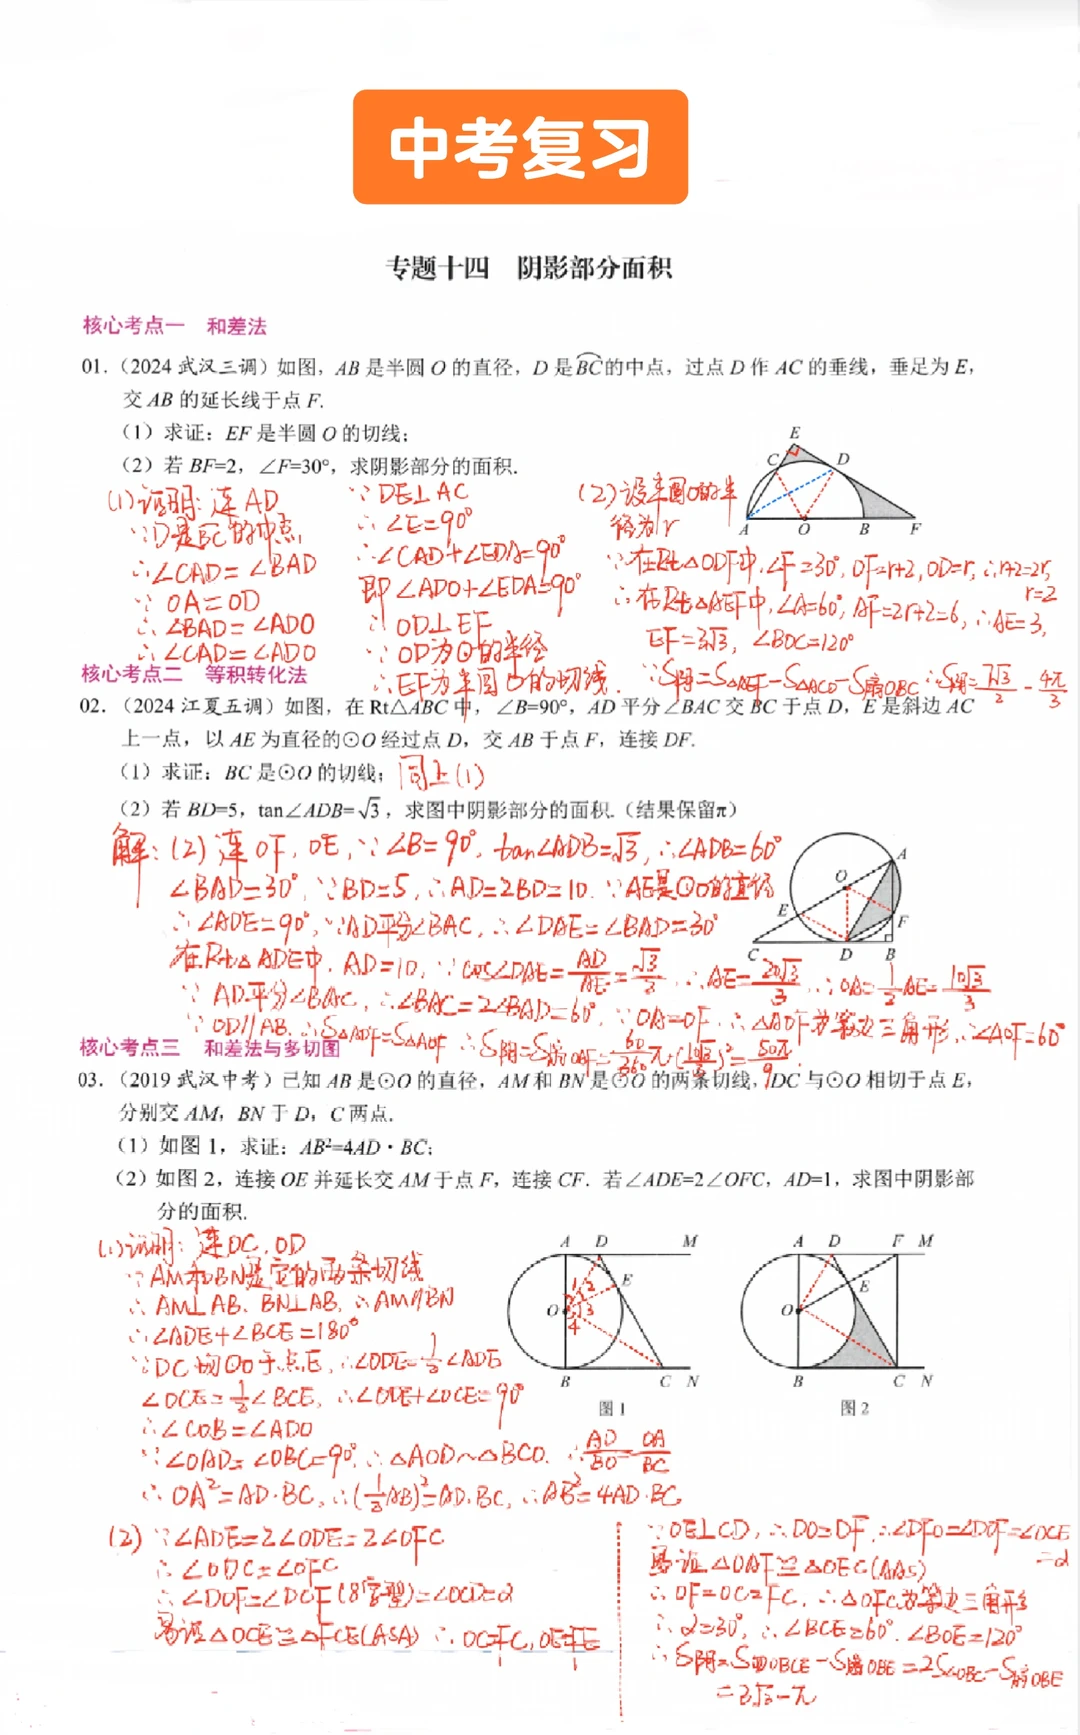 中考复习
专题十四 阴影部分面积
核心考点一 和差法
01.（2024 武汉三调）如图，AB 是半圆 O 的直径，D 是BC的中点，过点 D 作 AC 的垂线，垂足为 E，
交 AB 的延长线于点 F.
（1）求证：EF 是半圆 O 的切线；
（2）若 BF=2，∠F=30°，求阴影部分的面积.
E
C
D
A
O
B
F
(1)证明：连AD
∵D是BC的中点
∴∠CAD=∠BAD
∵OA=OD
∴∠BAD=∠ADO
∴∠CAD=∠ADO
∵DE⊥AC
∴∠E=90°
∴∠CAD+∠EDA=90°
即∠ADO+∠EDA=90°
∴OD⊥EF
∵OD为⊙的半径
∴EF为半圆O的切线.
(2)设半圆O的半
径为r
∵在Rt△ODF中,∠F=30°,OF=r+2,OD=r,∴r+2=2r,
r=2
∴在Rt△AEF中,∠A=60°,AF=2r+2=6,∴AE=3,
EF=3√3, ∠BOC=120°
∵S阴=S△AEF-S△ACO-S扇OBC ∴S阴=7√3/2-4π/3
核心考点二 等积转化法
02.（2024 江夏五调）如图，在 Rt△ABC 中，∠B=90°，AD 平分∠BAC 交 BC 于点 D，E 是斜边 AC
上一点，以 AE 为直径的⊙O 经过点 D，交 AB 于点 F，连接 DF.
（1）求证：BC 是⊙O 的切线；同上(1)
（2）若 BD=5，tan∠ADB=√3，求图中阴影部分的面积.（结果保留π）
解：(2)连OF, OE,∵∠B=90°, tan∠ADB=√3,∴∠ADB=60°
∠BAD=30°,∵BD=5,∴AD=2BD=10.∵AE是⊙O的直径
∴∠ADE=90°,∵AD平分∠BAC,∴∠DAE=∠BAD=30°
在Rt△ADE中, AD=10,∵cos∠DAE=AD/AE=√3/2 ∴AE=20√3/3 ∴OA=1/2AE=10√3/3
∵AD平分∠BAC,∴∠BAC=2∠BAD=60°,∵OA=OF,∴△AOF为等边三角形,∴∠AOF=60°
∵OD∥AB,∴S△ADF=S△AOF ∴S阴=S扇OAF=60/360π·(10√3/3)²=50π/9
A
O
E
F
C
D
B
核心考点三 和差法与多切图
03.（2019 武汉中考）已知 AB 是⊙O 的直径，AM 和 BN 是⊙O 的两条切线，DC 与⊙O 相切于点 E，
分别交 AM，BN 于 D，C 两点.
（1）如图 1，求证：AB²=4AD·BC；
（2）如图 2，连接 OE 并延长交 AM 于点 F，连接 CF. 若∠ADE=2∠OFC，AD=1，求图中阴影部
分的面积.
(1)证明：连OC, OD
∵AM和BN是它的两条切线
∴AM⊥AB, BN⊥AB,∴AM∥BN
∴∠ADE+∠BCE=180°
∵DC切⊙O于点E,∴∠ODE=1/2∠ADE
∠OCE=1/2∠BCE,∴∠ODE+∠OCE=90°
∴∠COB=∠ADO
∵∠OAD=∠OBC=90°,∴△AOD∽△BCO. ∴AD/BO=OA/BC
∴OA²=AD·BC,∴(1/2AB)²=AD·BC,∴AB²=4AD·BC
A D M
1 2
E
O 3
4
B C N
图 1
A D F M
E
O
B C N
图 2
(2) ∵∠ADE=2∠ODE=2∠OFC
∴∠ODC=∠OFC
∴∠DOF=∠DCF(8字型)=∠OCD=α
易证△OCE≌△FCE(ASA) ∴OC=FC,OE=FE
∵OE⊥CD,∴DO=DF,∴∠DFO=∠DOF=∠OCE
=α
易证△OAF≌△OEC(AAS)
∴OF=OC=FC,∴△OFC为等边三角形
∴α=30°,∴∠BCE=60°.∠BOE=120°
∴S阴=S四OBCE-S扇OBE=2S△OBC-S扇OBE
=3√3-π